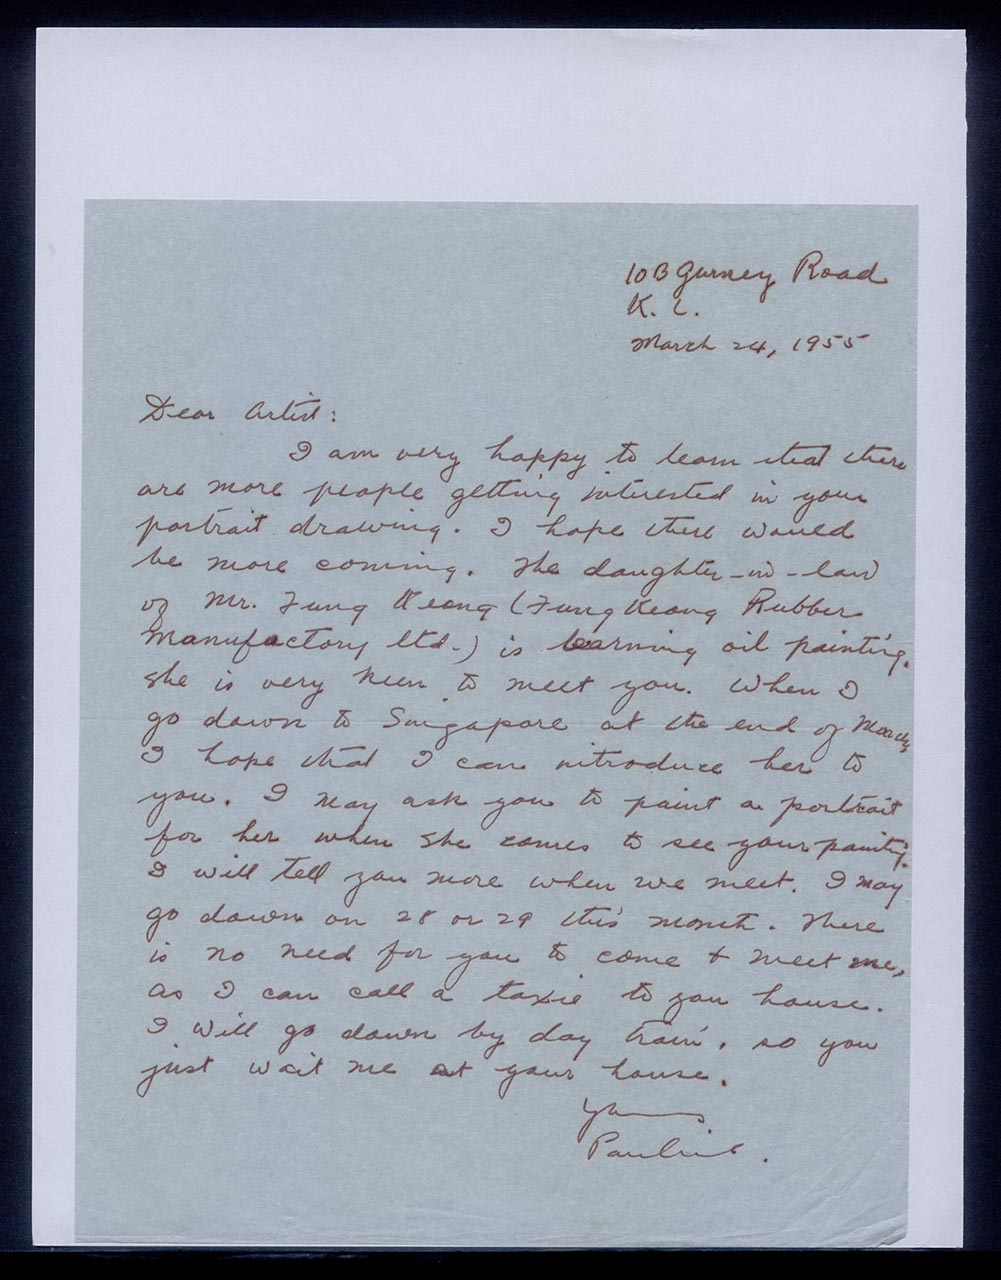 10B Gurney Road
K. L.
March 24, 1955
Dear Artist:
I am very happy to learn that there
are more people getting interested in your
portrait drawing. I hope there would
be more coming. The daughter-in-law
of Mr. Fung Keong (Fung Keong Rubber
Manufactory Ltd.) is learning oil painting.
She is very keen to meet you. When I
go down to Singapore at the end of March,
I hope that I can introduce her to
you. I may ask you to paint a portrait
for her when she comes to see your painting.
I will tell you more when we meet. I may
go down on 28 or 29 this month. There
is no need for you to come & meet me,
as I can call a taxie to you house.
I will go down by day train, so you
just wait me at your house.
Yours.
Pauline.